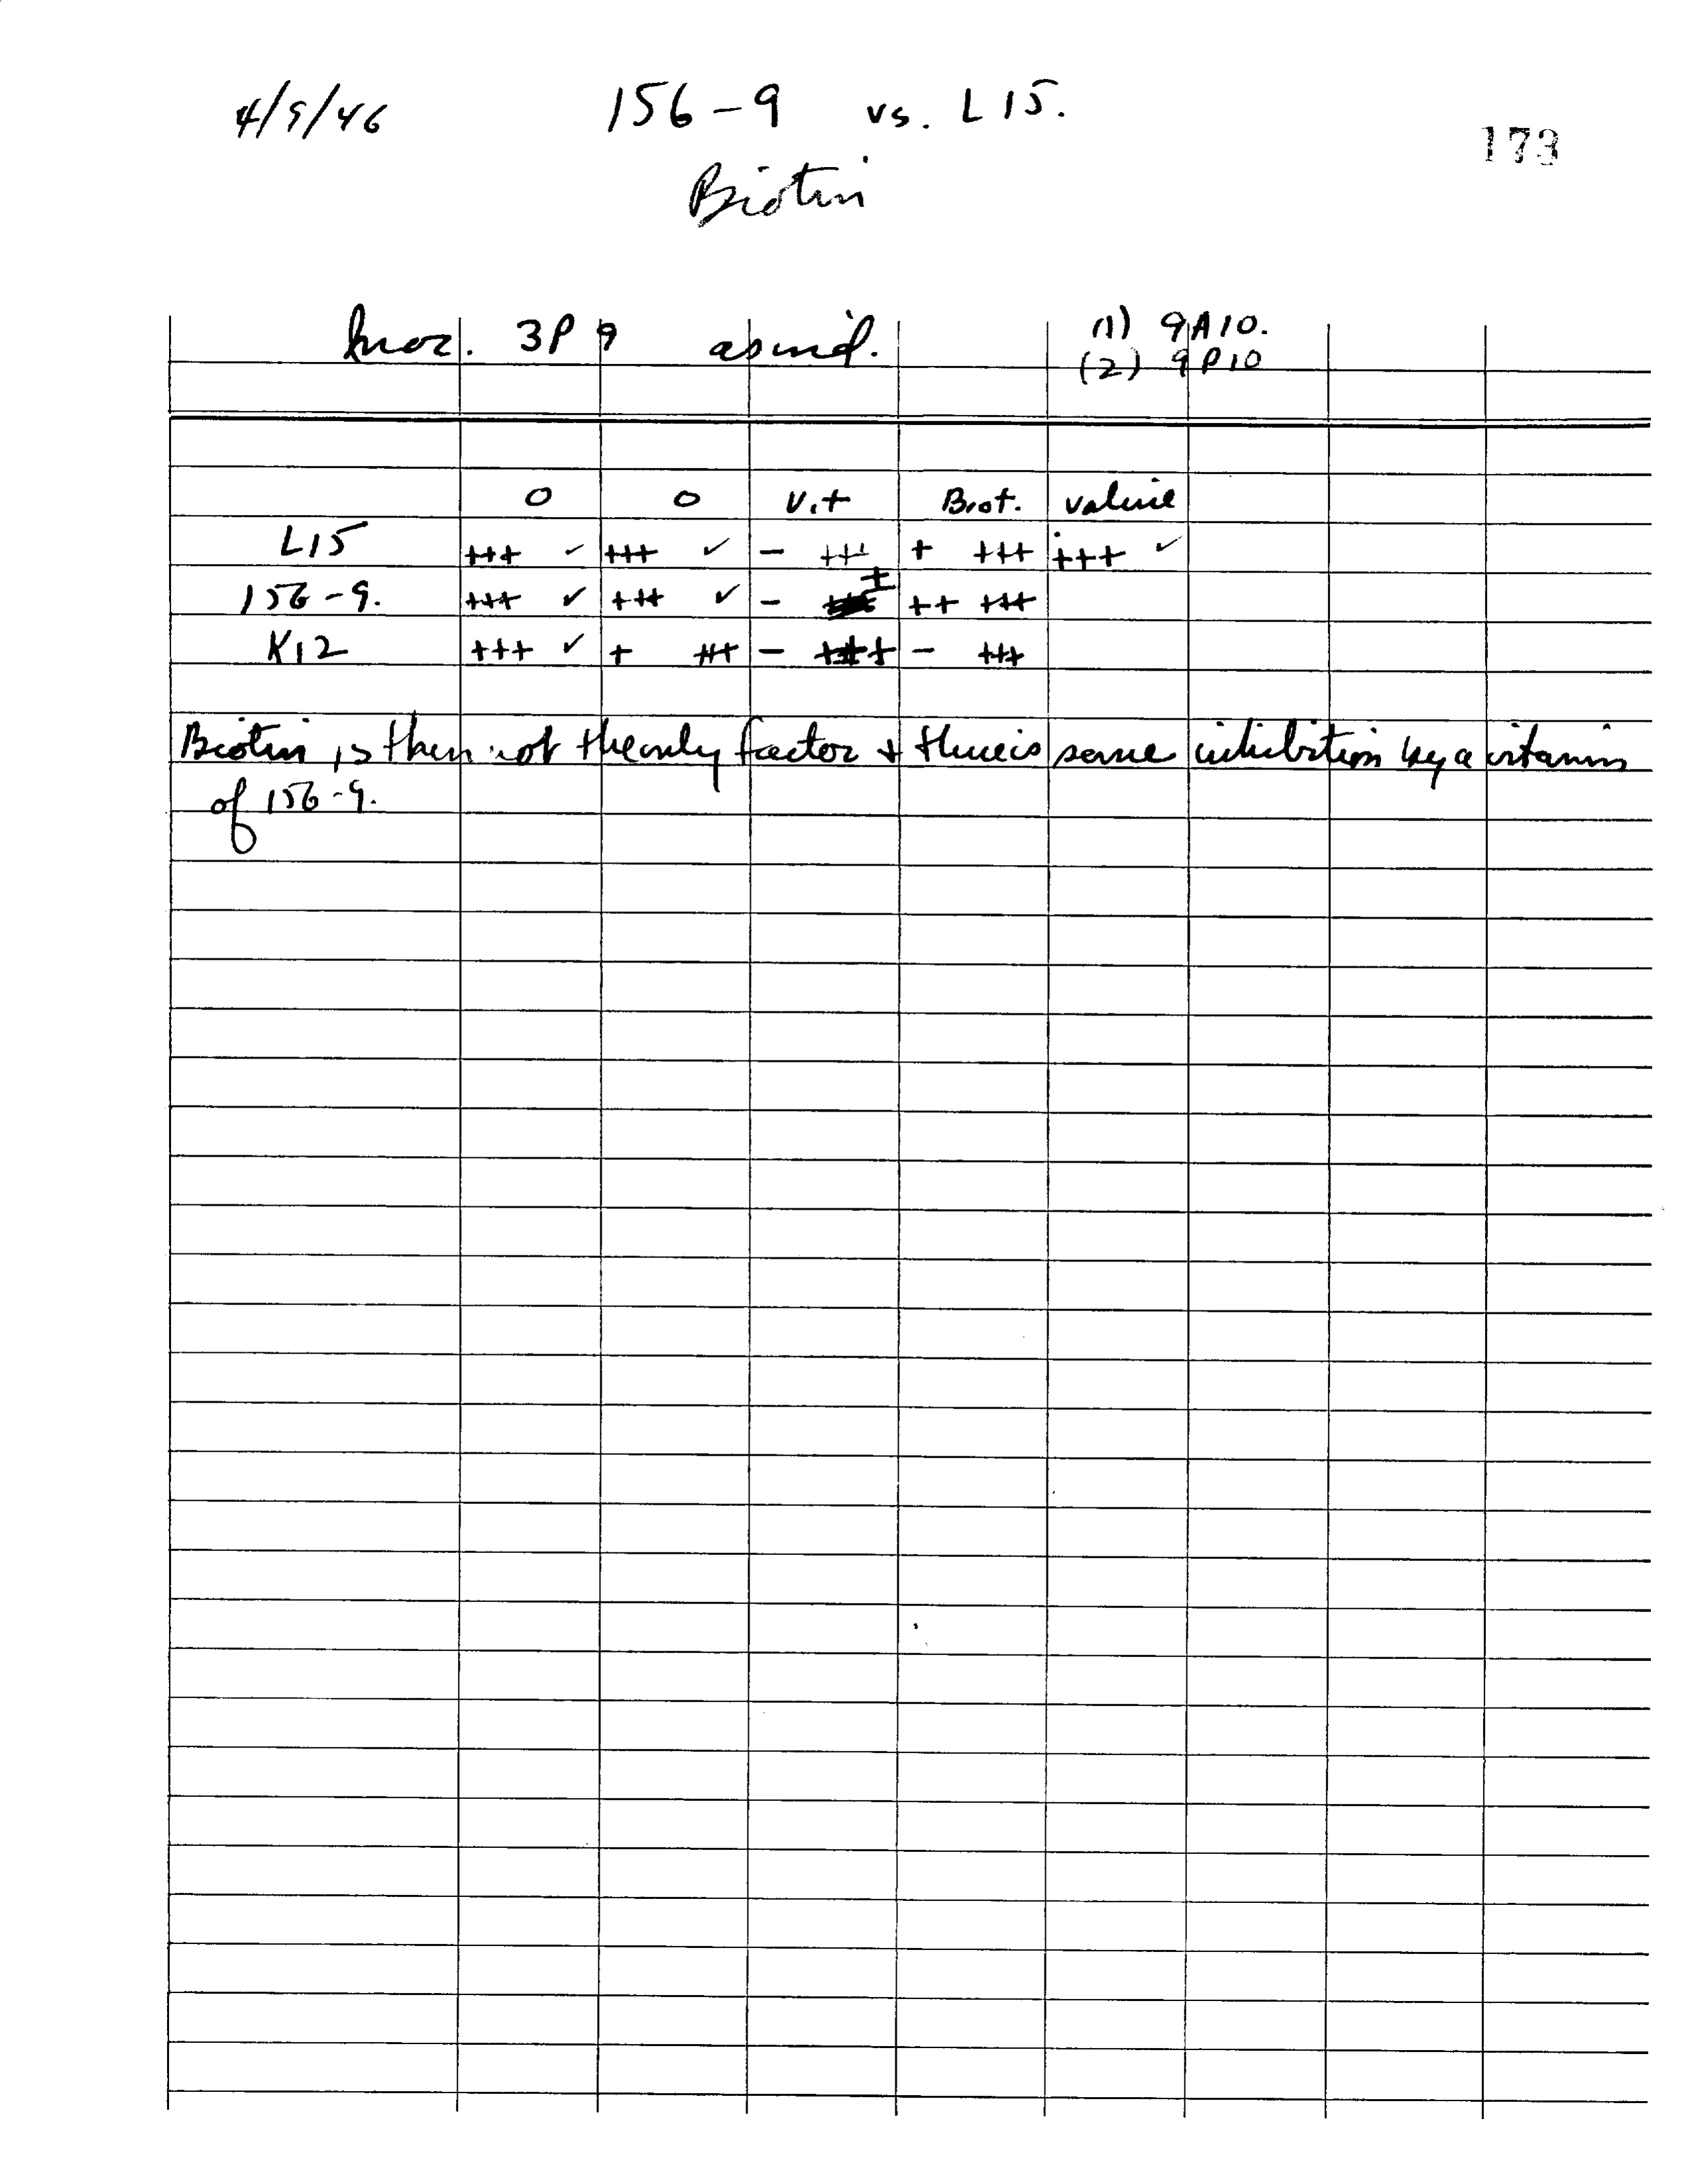 4/9/46 156-9 vs. L15.
173
Biotin
Inoc. 3P9 as ind. (1) 9A10.
(2) 9P10
0 0 Vit Biot. valine
L15 +++ ✓ +++ ✓ - +++ + +++ +++ ✓
156-9. +++ ✓ +++ ✓ - ± ++ +++
K12 +++ ✓ + +++ - +++ - +++
Biotin is then not the only factor + there is some inhibition by a vitamin
of 156-9.